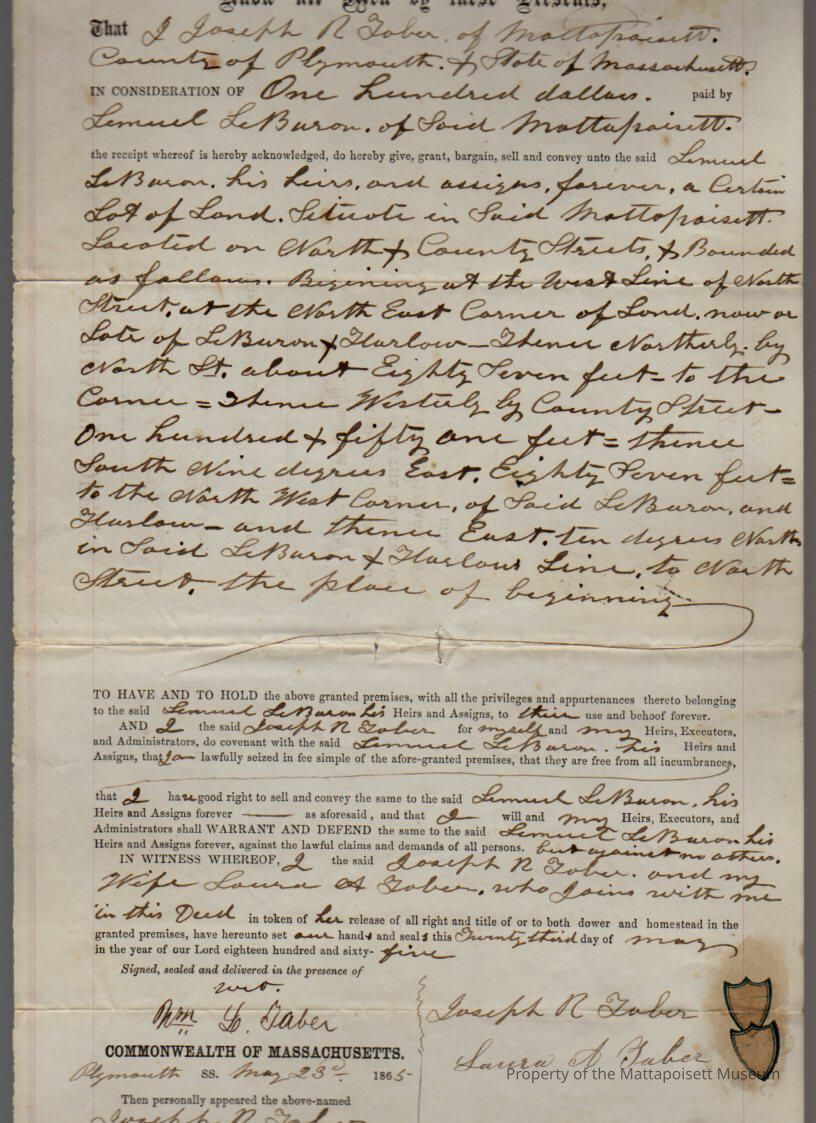 Know all Men by these Presents,
That I Joseph R Taber, of Mattapoisett.
County of Plymouth. & State of Massachusetts.
IN CONSIDERATION OF One hundred dollars. paid by
Lemuel LeBaron. of Said Mattapoisett.
the receipt whereof is hereby acknowledged, do hereby give, grant, bargain, sell and convey unto the said Lemuel
LeBaron, his heirs, and assigns, forever, a Certain
Lot of Land. Situate in Said Mattapoisett.
Located on North & County Streets, & Bounded
as follows. Begining at the West Line of North
Street, at the North East Corner of Land, now or
Late of LeBaron & Harlow — Thence Northerly. by
North St. about Eighty Seven feet = to the
Corner = Thence Westerly by County Street —
One hundred & fifty one feet = thence
South Nine degrees East. Eighty Seven feet =
to the North West Corner, of Said LeBaron, and
Harlow — and thence East. ten degrees North
in Said LeBaron & Harlows Line, to North
Street, the place of beginning
TO HAVE AND TO HOLD the above granted premises, with all the privileges and appurtenances thereto belonging
to the said Lemuel LeBaron his Heirs and Assigns, to their use and behoof forever.
AND I the said Joseph R Taber for myself and my Heirs, Executors,
and Administrators, do covenant with the said Lemuel LeBaron. his Heirs and
Assigns, that I am lawfully seized in fee simple of the afore-granted premises, that they are free from all incumbrances,
that I have good right to sell and convey the same to the said Lemuel LeBaron, his
Heirs and Assigns forever — as aforesaid, and that I will and my Heirs, Executors, and
Administrators shall WARRANT AND DEFEND the same to the said Lemuel LeBaron his
Heirs and Assigns forever, against the lawful claims and demands of all persons. but against no others.
IN WITNESS WHEREOF, I the said Joseph R Taber. and my
Wife Laura A Taber, who Joins with me
in this Deed in token of her release of all right and title of or to both dower and homestead in the
granted premises, have hereunto set our hands and seals this Twenty third day of May
in the year of our Lord eighteen hundred and sixty- five
Signed, sealed and delivered in the presence of
Wm L. Taber
Joseph R Taber
COMMONWEALTH OF MASSACHUSETTS.
Laura A Taber
Plymouth SS. May 23d 1865-
Property of the Mattapoisett Museum
Then personally appeared the above-named
Joseph R Taber